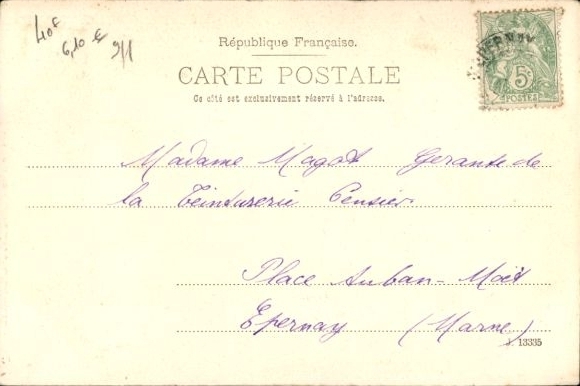 40F
6,10 €
9/1
République Française.
CARTE POSTALE
Ce côté est exclusivement réservé à l'adresse.
EPERNAY
5c
POSTES
Madame Magot Gerante de
la Teinturerie Pensier
Place Auban-Moët
Epernay (Marne)
13335